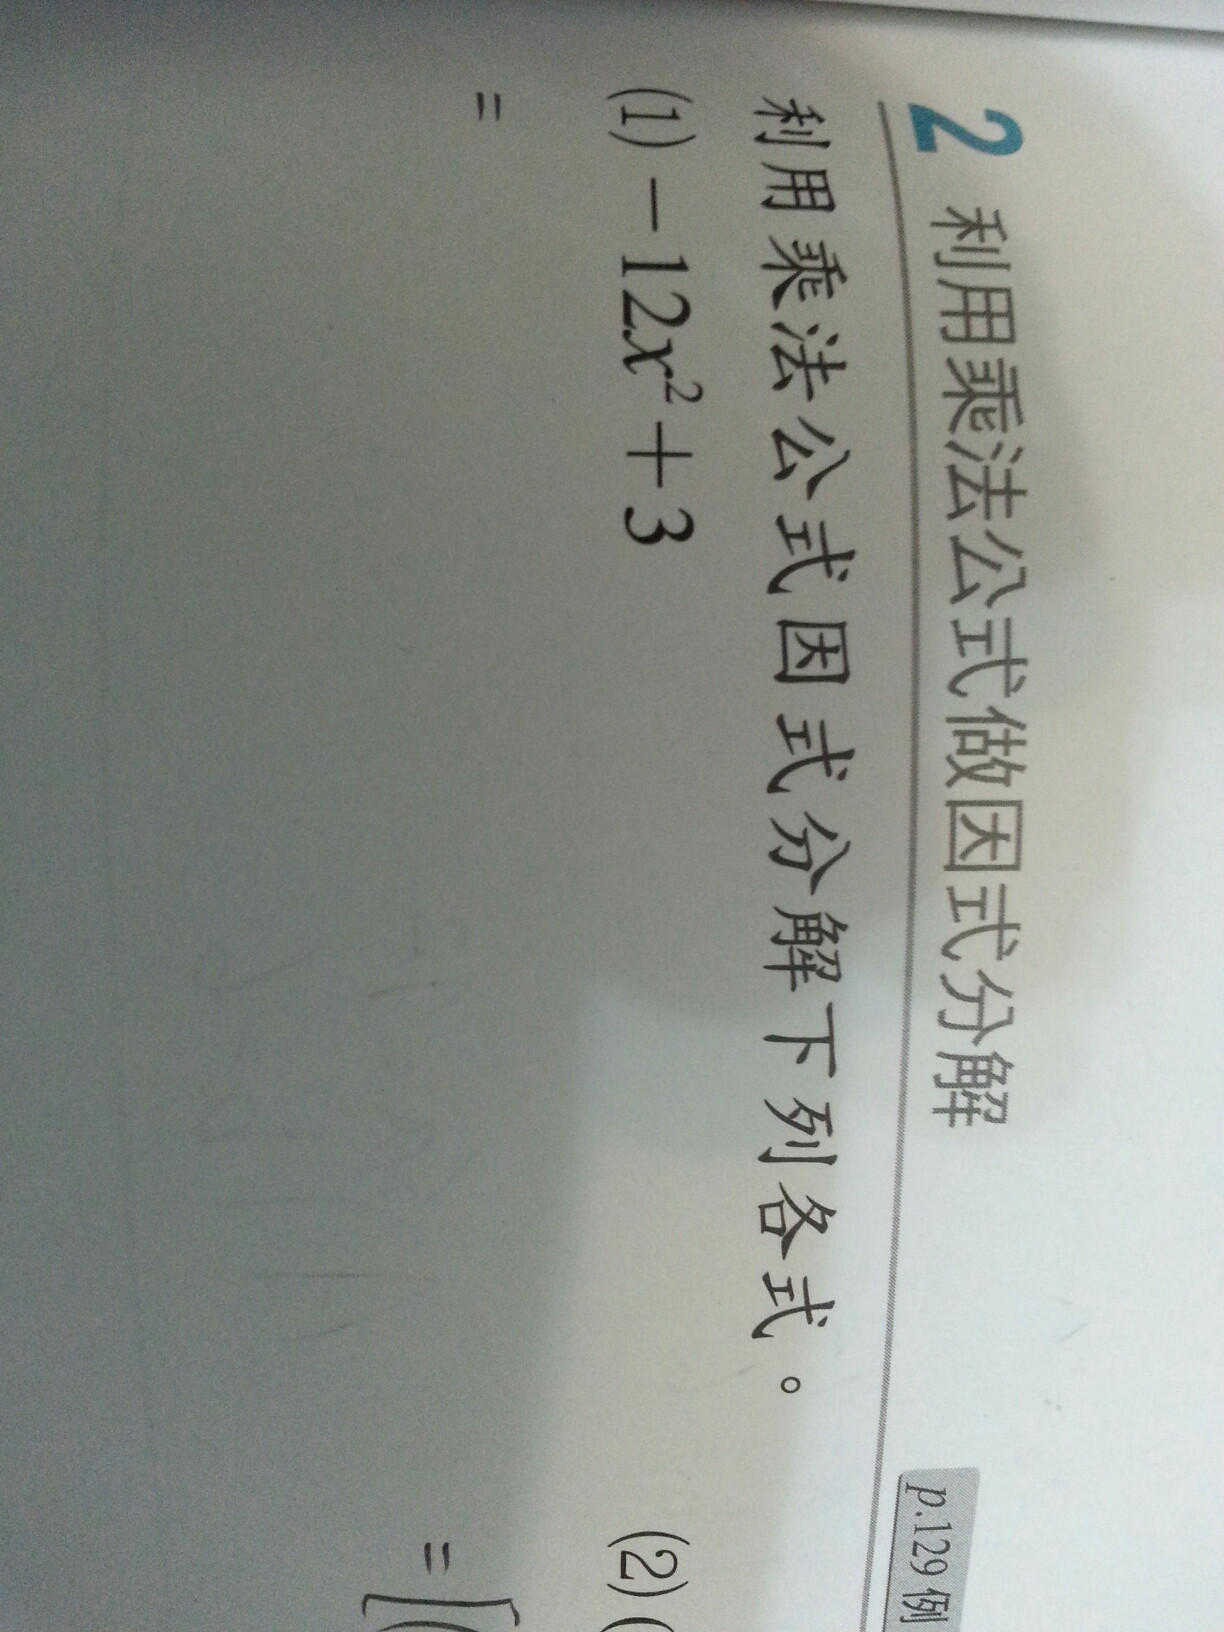 2 利用乘法公式做因式分解
p.129 例
利用乘法公式因式分解下列各式。
(1) −12x²+3
(2) (
=
= [(